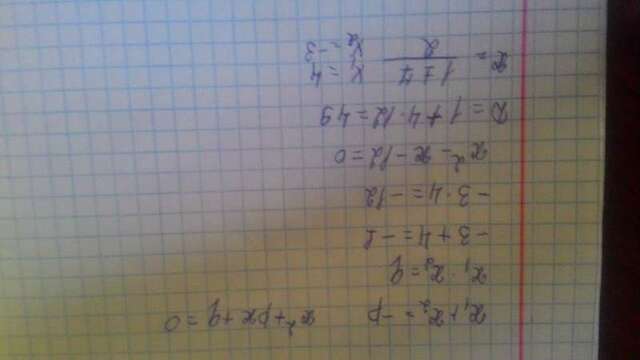 x₁+x₂=-p x²+px+q=0
x₁·x₂=q
-3+4=-1
-3·4=-12
x²-x-12=0
D=1+4·12=49
x=(1±7)/2 x₁=4
x₂=-3